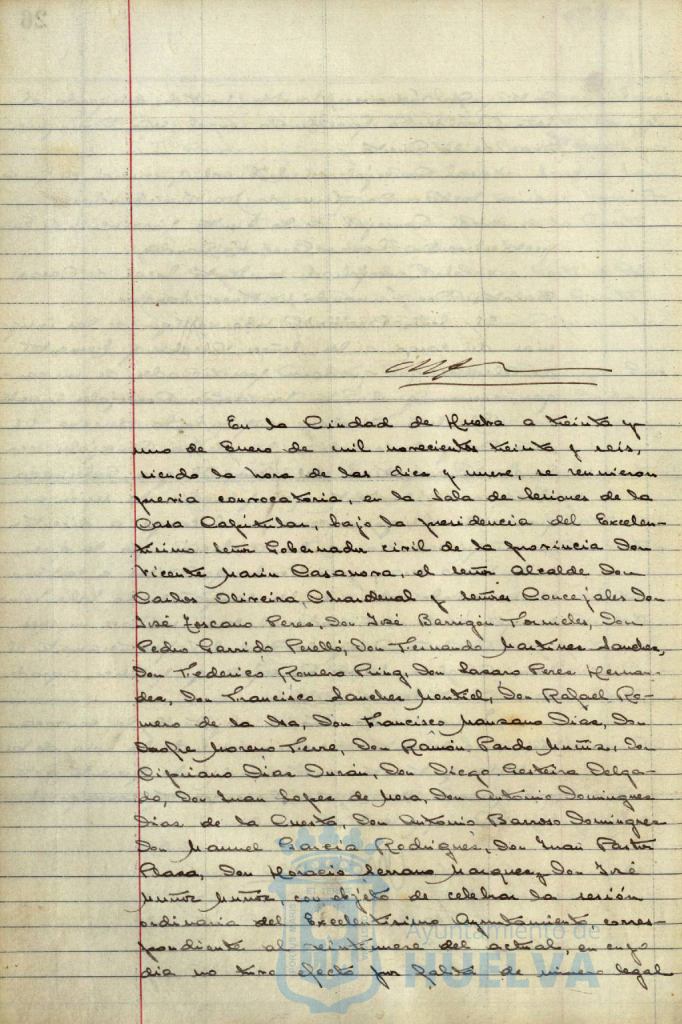 En la Ciudad de Huelva a treinta y
uno de Enero de mil novecientos treinta y seis,
siendo la hora de las diez y nueve, se reunieron
previa convocatoria, en la Sala de Sesiones de la
Casa Capitular, bajo la presidencia del Excelen-
tisimo señor Gobernador civil de la provincia Don
Vicente Marin Casanova, el señor Alcalde Don
Carlos Oliveira Chardenal y señores Concejales Don
José Toscano Perez, Don José Barrigón Fornieles, Don
Pedro Garrido Perelló, Don Fernando Martinez Sanchez,
Don Federico Romero Pring, Don Lazaro Perez Hernan-
dez, Don Francisco Sanchez Montiel, Don Rafael Ro-
mero de la Isa, Don Francisco Manzano Diaz, Don
Onofre Moreno Terre, Don Ramón Pardo Muñiz, Don
Cipriano Diaz Durán, Don Diego Gesteira Delga-
do, Don Juan Lopez de Mora, Don Antonio Dominguez
Diaz de la Cuesta, Don Antonio Barroso Dominguez
Don Manuel Garcia Rodriguez, Don Juan Pastor
Don Horacio Serrano Marquez y Don José
Muñoz Muñoz, con objeto de celebrar la sesión
ordinaria del Excelentisimo Ayuntamiento corres-
pondiente al veintinueve del actual, en cuyo
dia no tuvo efecto por falta de número legal
Ayuntamiento de
HUELVA